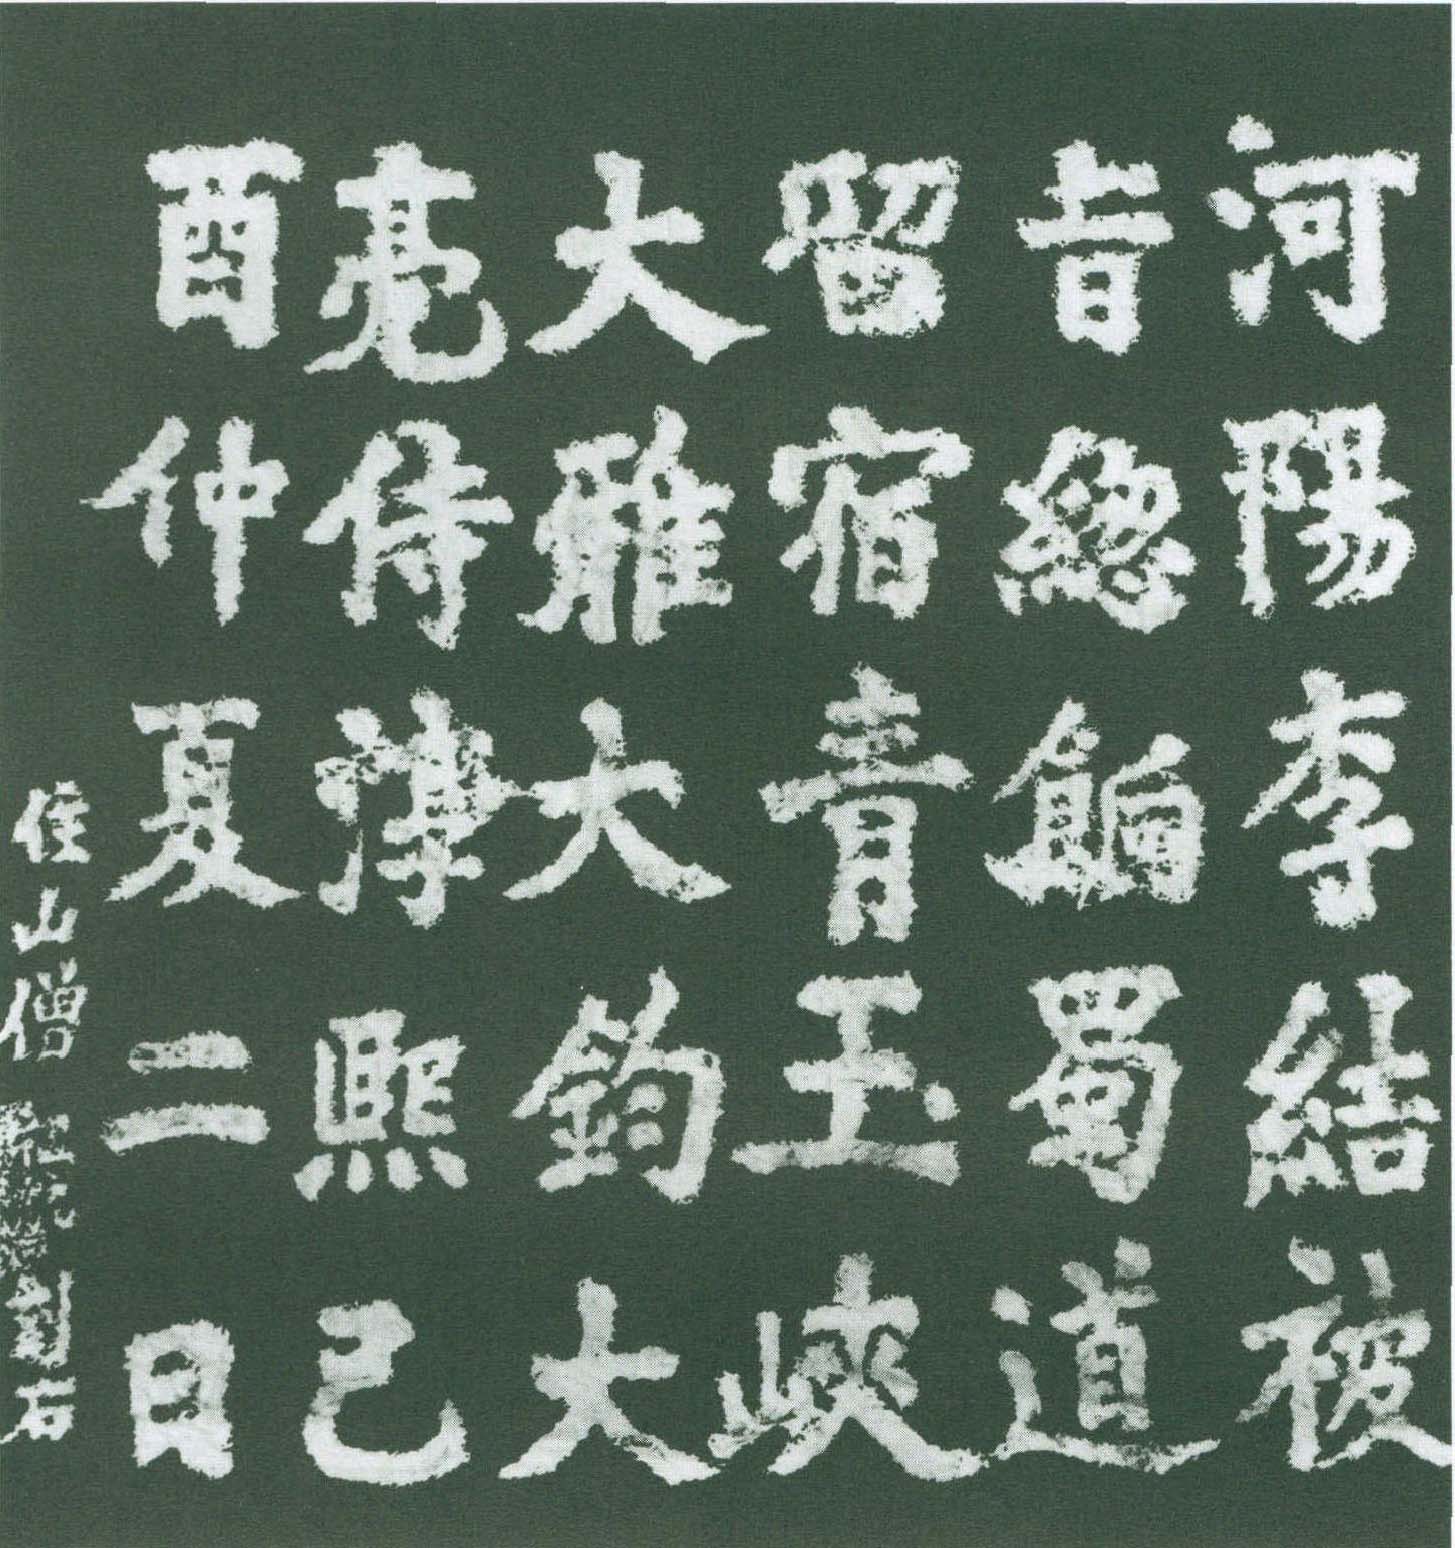 河陽李結被
旨總餉蜀道
留宿青玉峽
大雅大鈞大
亮侍淳熙己
酉仲夏二日
住山僧 刻石